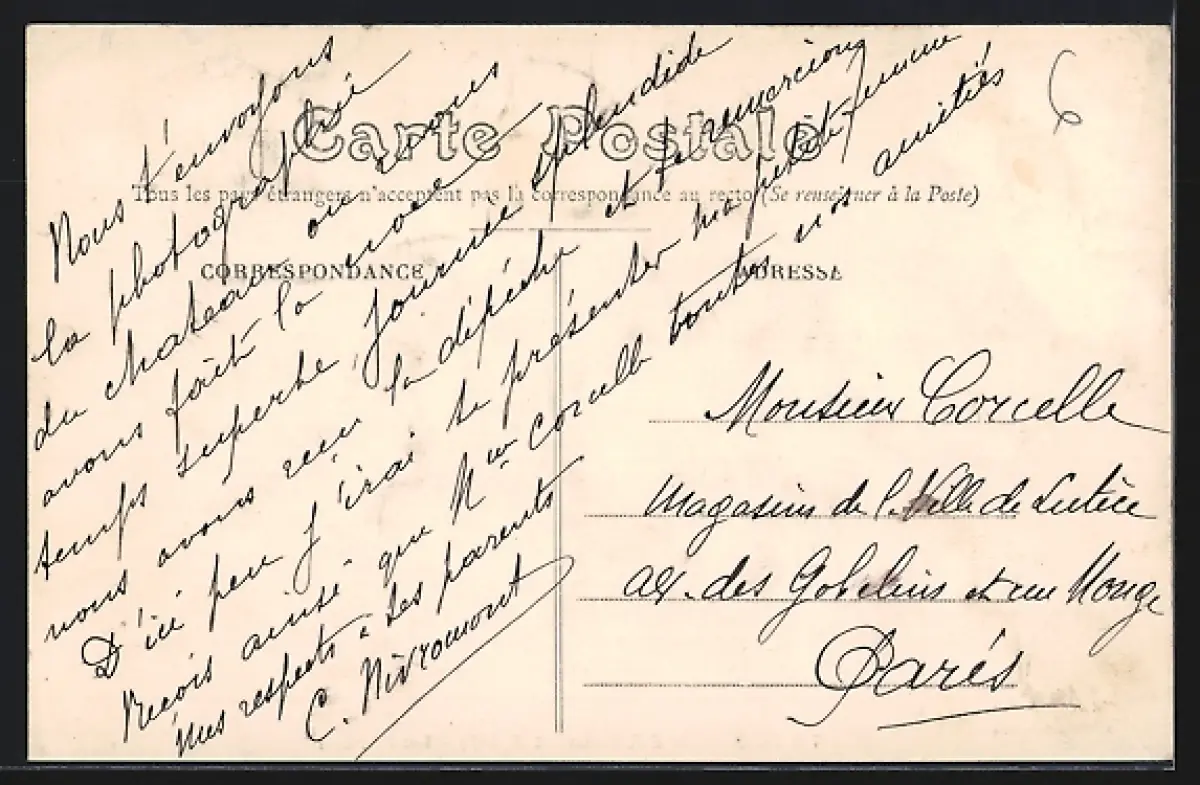 Carte Postale
Tous les pays étrangers n'acceptent pas la correspondance au recto (Se renseigner à la Poste)
CORRESPONDANCE
ADRESSE
Nous t'envoyons
la photographie
du chateau ou nous
avons fait la noce
temps superbe, journée splendide
nous avons reçu la dépêche et te remercions
D'ici peu j'irai te présenter ma petite femme
Reçois ainsi que Mme Corcelle toutes nos amitiés
Mes respects à tes parents
C. Nivromont
Monsieur Corcelle
Magasins de la Ville de Lutèce
av. des Gobelins et rue Monge
Paris